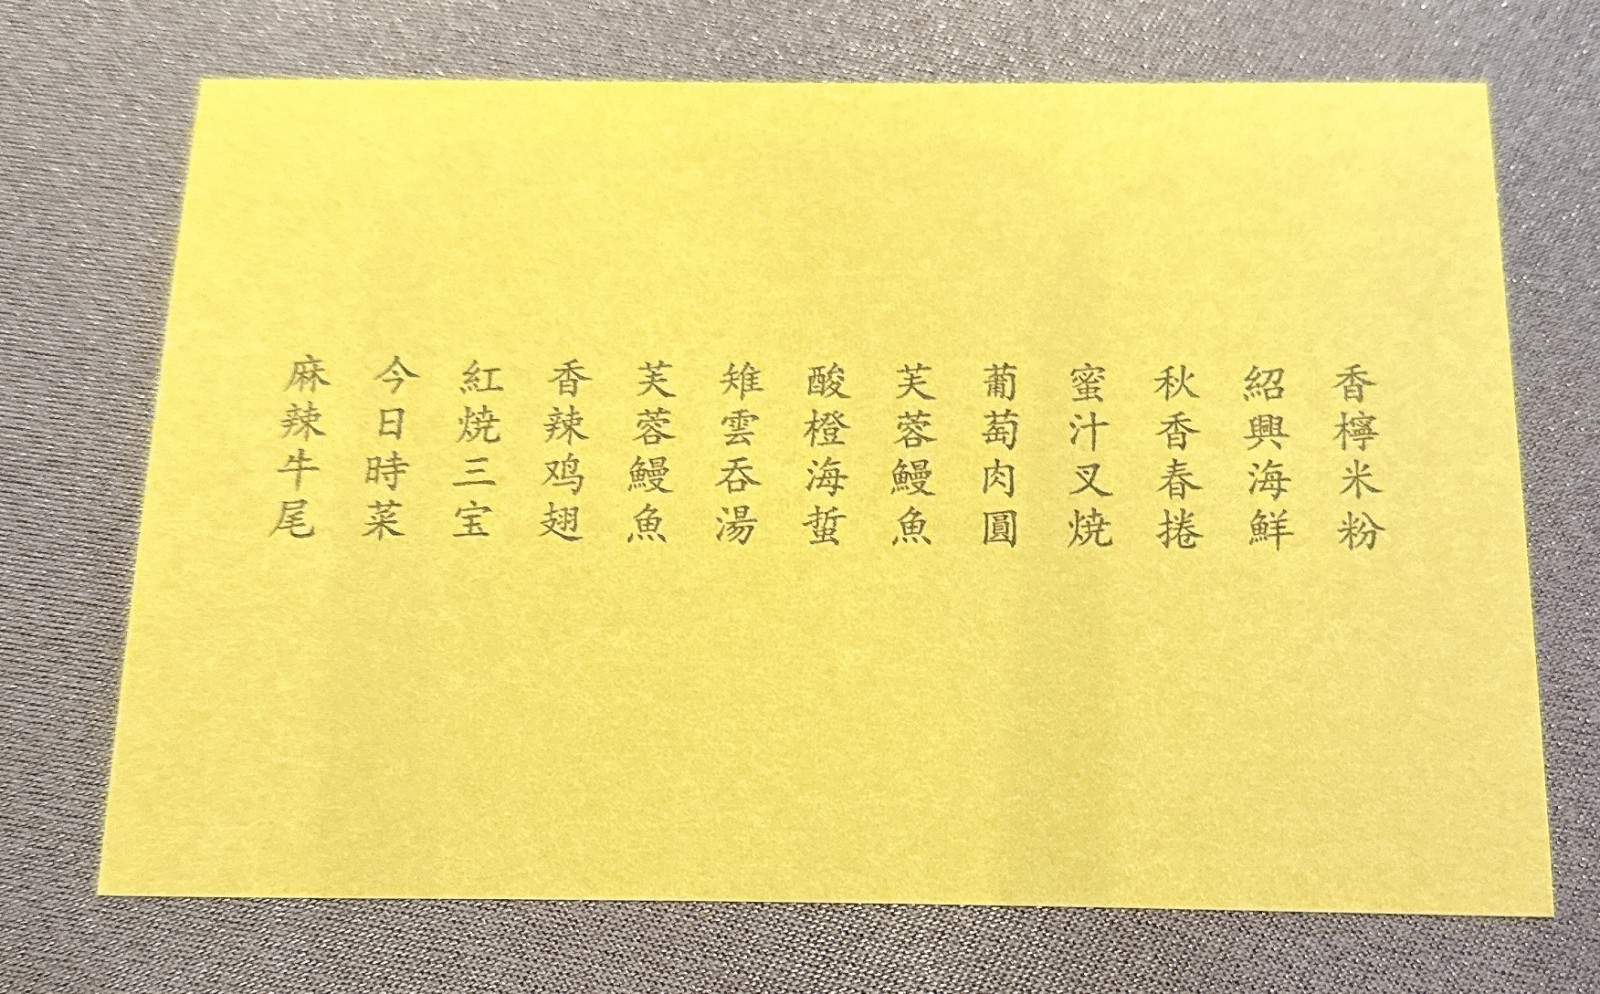 香檸米粉
紹興海鮮
秋香春捲
蜜汁叉焼
葡萄肉圓
芙蓉鰻魚
酸橙海蜇
雉雲呑湯
芙蓉鰻魚
香辣鸡翅
紅焼三宝
今日時菜
麻辣牛尾